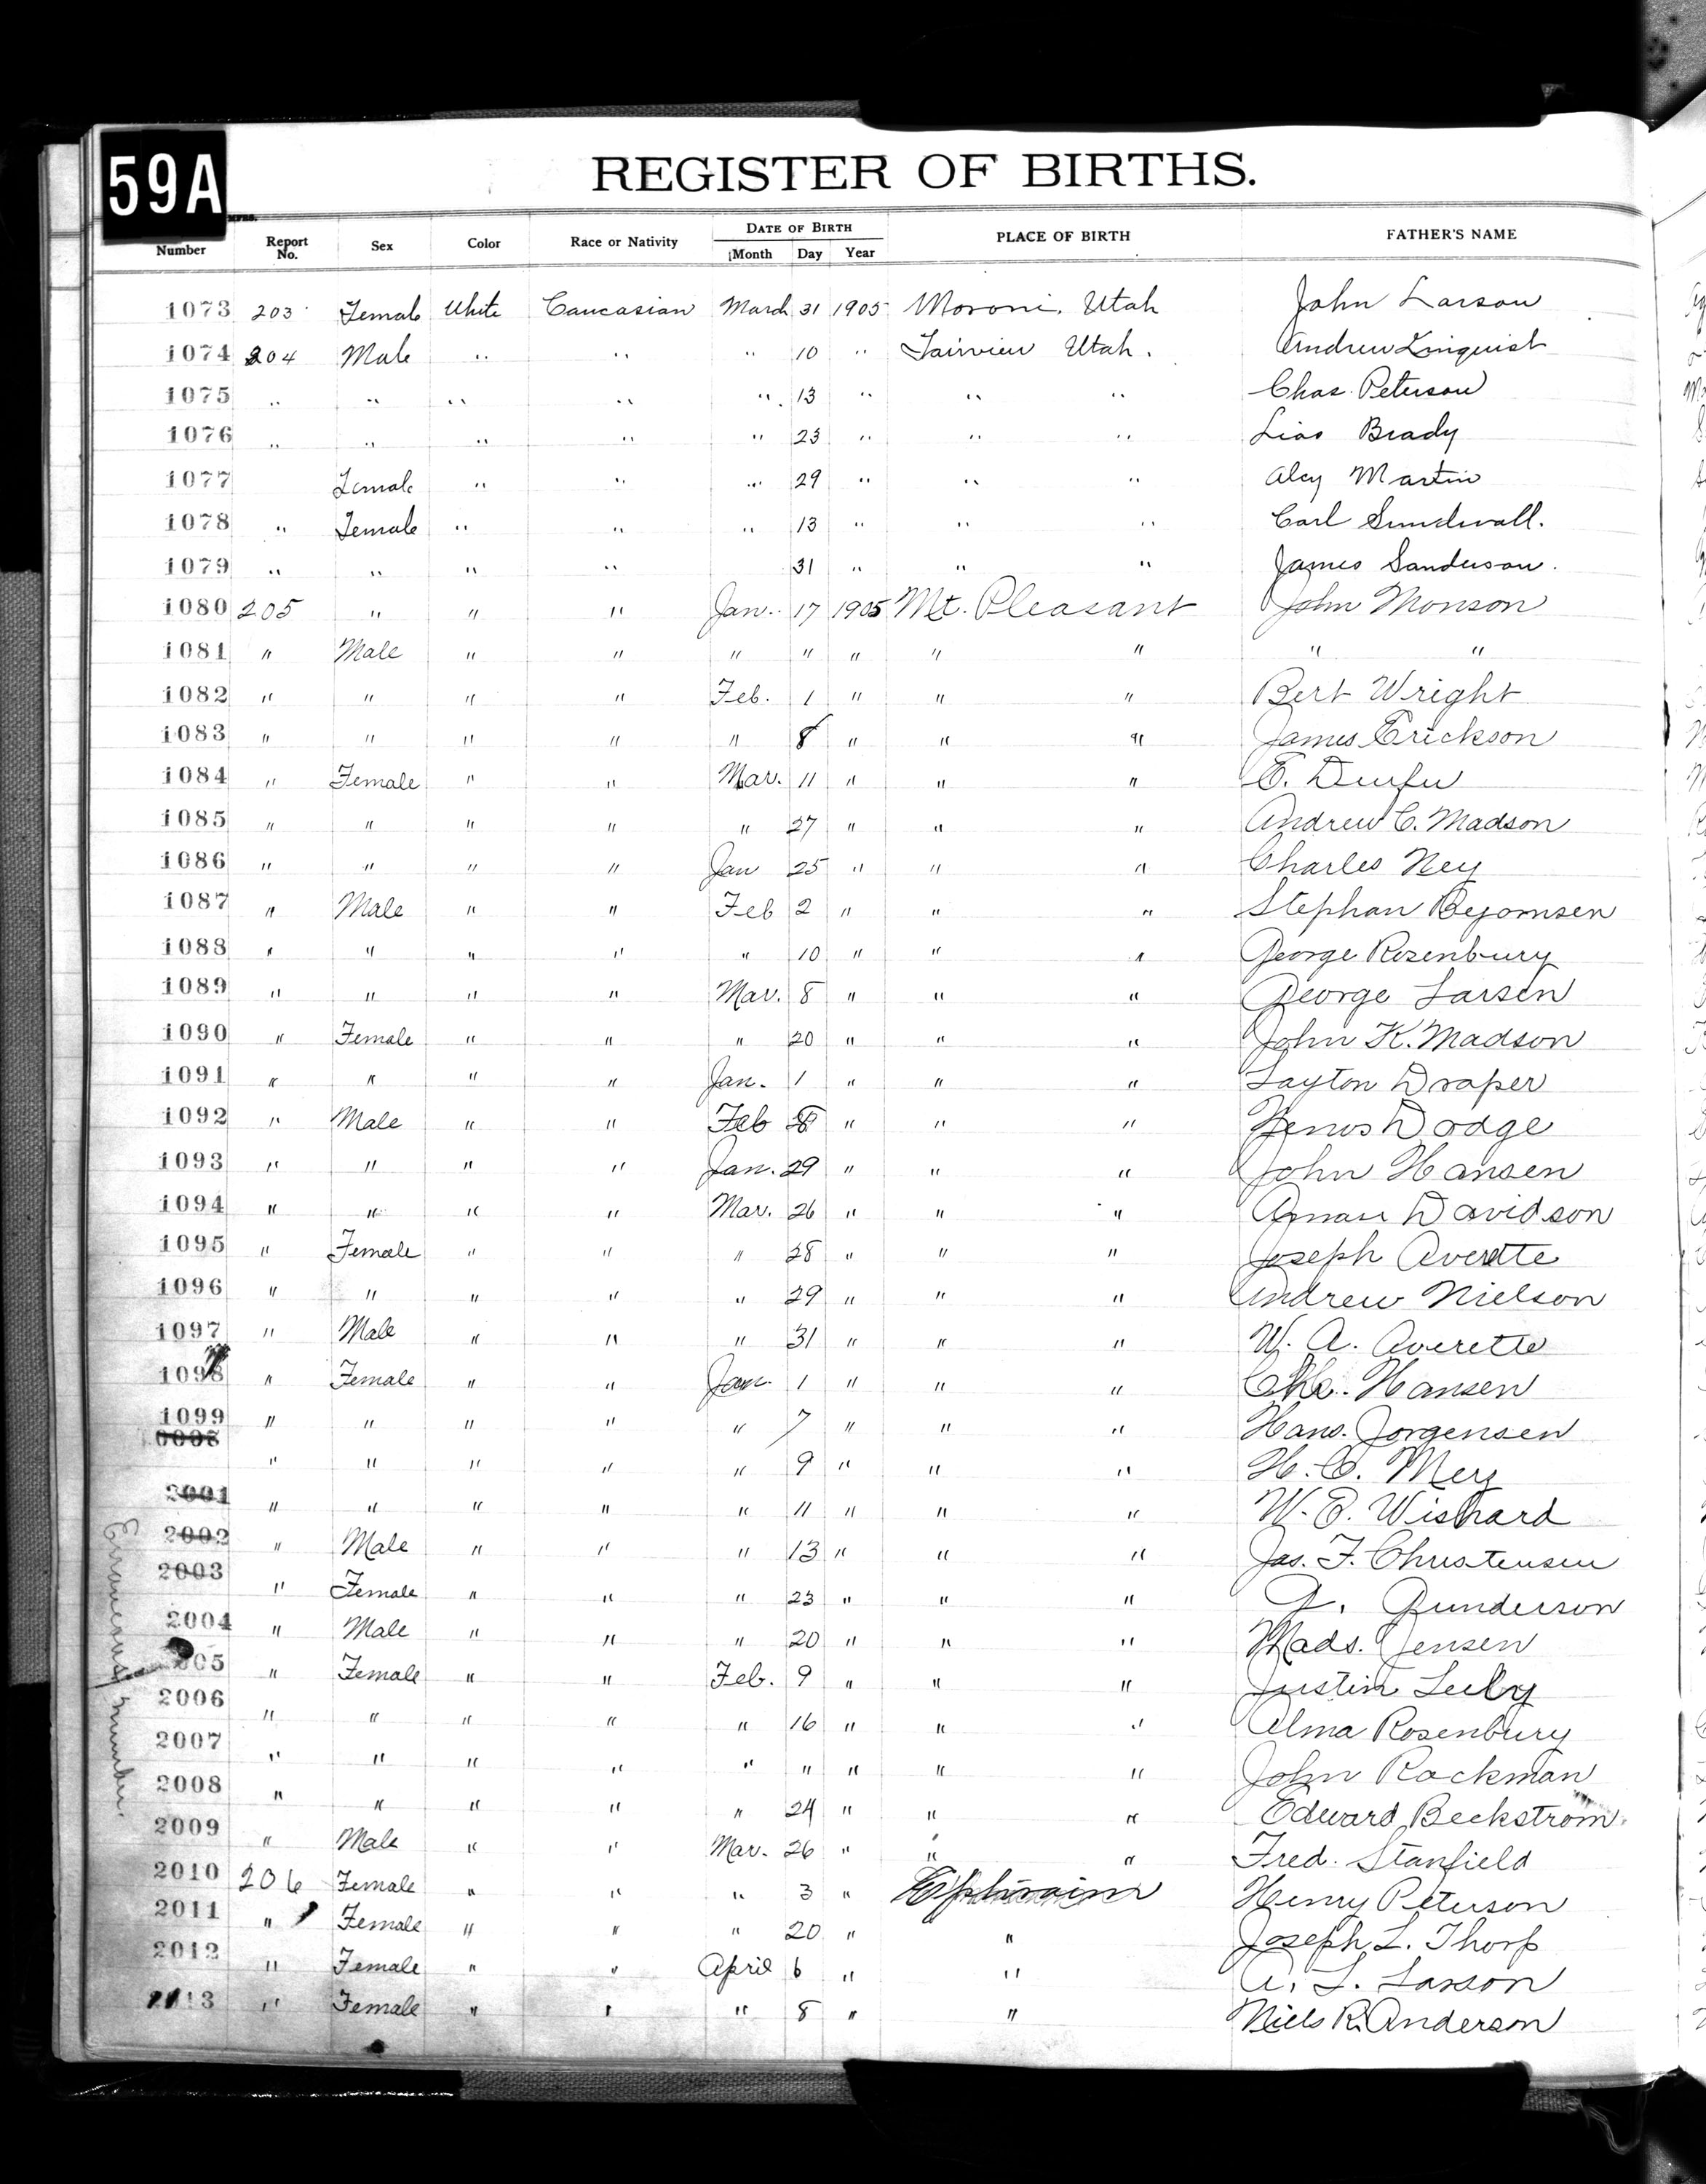 59A
REGISTER OF BIRTHS.
Number Report No. Sex Color Race or Nativity DATE OF BIRTH Month Day Year PLACE OF BIRTH FATHER'S NAME
1073 203 Female White Caucasian March 31 1905 Moroni, Utah John Larson
1074 204 Male " " " 10 " Fairview Utah. Andrew Linquist
1075 " " " " " 13 " " " Chas. Peterson
1076 " " " " " 23 " " " Brady
1077 Female " " " 29 " " " Martin
1078 " Female " " " 13 " " " Carl Sundwall.
1079 " " " " 31 " " " James Sanderson.
1080 205 " " " Jan. 17 1905 Mt. Pleasant John Monson
1081 " Male " " " " " " " " "
1082 " " " " Feb. 1 " " " Bert Wright
1083 " " " " " 8 " " " James Erickson
1084 " Female " " Mar. 11 " " " E. Durfee
1085 " " " " " 27 " " " Andrew C. Madson
1086 " " " " Jan 25 " " " Charles Ney
1087 " Male " " Feb 2 " " " Stephan Bejomsen
1088 " " " " " 10 " " " George Rosenbury
1089 " " " " Mar. 8 " " " George Larsen
1090 " Female " " " 20 " " " John K. Madson
1091 " " " " Jan. 1 " " " Layton Draper
1092 " Male " " Feb " " " Dodge
1093 " " " " Jan. 29 " " " John Hansen
1094 " " " " Mar. 26 " " " Davidson
1095 " Female " " " 28 " " " Joseph Averette
1096 " " " " " 29 " " " Andrew Nielson
1097 " Male " " " 31 " " " W. A. Averette
1098 " Female " " Jan. 1 " " " Hansen
1099 " " " " " 7 " " " Hans. Jorgensen
" " " " " 9 " " " H. C. Merz
2001 " " " " " 11 " " " W. E. Wishard
2002 " Male " " " 13 " " " Jas. F. Christensen
2003 " Female " " " 23 " " " G. Gunderson
2004 " Male " " " 20 " " " Mads. Jensen
2005 " Female " " Feb. 9 " " " Justin Seely
2006 " " " " " 16 " " " Alma Rosenbury
2007 " " " " " " " " " John Rockman
2008 " " " " " 24 " " " Edward Beckstrom.
2009 " Male " " Mar. 26 " " " Fred. Stanfield
2010 206 Female " " " 3 " Ephraim Henry Peterson
2011 " Female " " " 20 " " Joseph L. Thorp
2012 " Female " " April 6 " " A. L. Larson
2013 " Female " " " 8 " " Niels R. Anderson
Erroneous number.